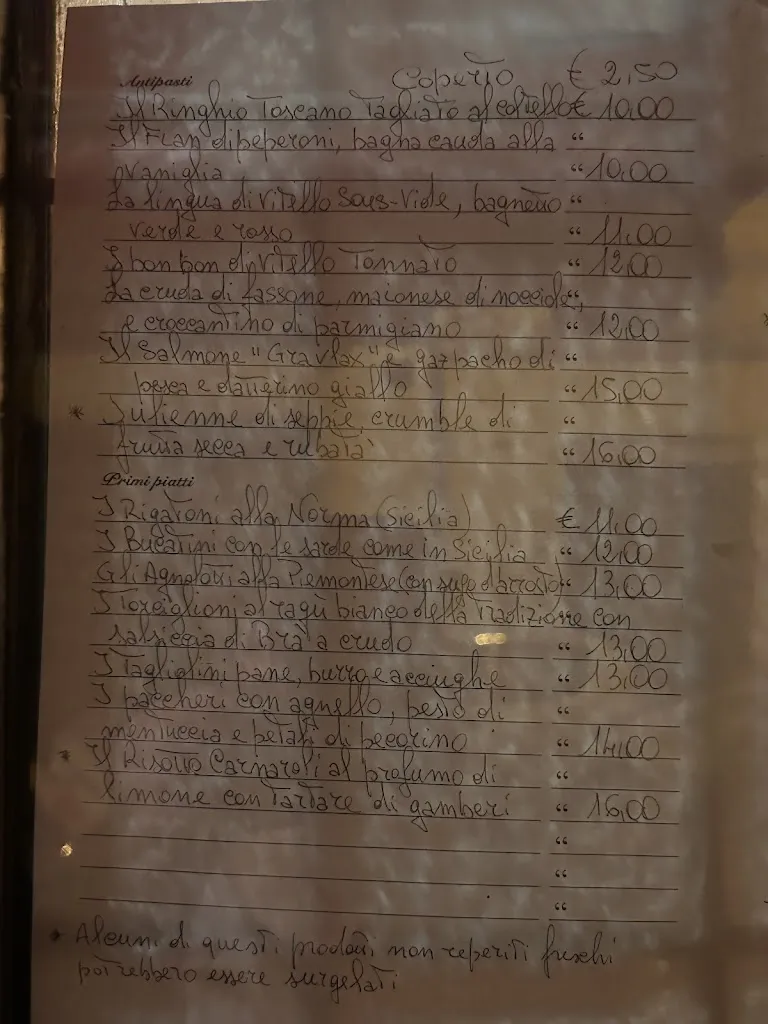 Coperto € 2,50
Antipasti
Il Ringhio Toscano Tagliato al coltello € 10,00
Il Flan di peperoni, bagna cauda alla “
vaniglia “ 10,00
La lingua di vitello Sous-Vide, bagnetto “
verde e rosso “ 11,00
I bon bon di vitello Tonnato “ 12,00
La cruda di fassone, maionese di nocciole, “
e croccantino di parmigiano “ 12,00
Il Salmone "Gravlax" e gazpacho di “
pesca e datterino giallo “ 15,00
* Julienne di seppie, crumble di “
frutta secca e rubatà “ 16,00
Primi piatti
I Rigatoni alla Norma (Sicilia) € 11,00
I Bucatini con le sarde come in Sicilia “ 12,00
Gli Agnolotti alla Piemontese (con sugo d'arrosto) “ 13,00
I Torciglioni al ragù bianco della Tradizione con
salsiccia di Bra a crudo “ 13,00
I Tagliolini pane, burro e acciughe “ 13,00
I paccheri con agnello, pesto di “
mentuccia e petali di pecorino “ 14,00
* Il Risotto Carnaroli al profumo di “
limone con Tartare di gamberi “ 16,00
“
“
“
* Alcuni di questi prodotti non reperiti freschi
potrebbero essere surgelati